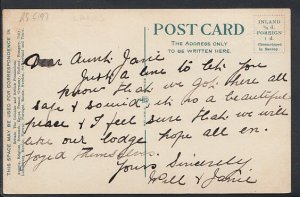 RS 6193
POST CARD
THE ADDRESS ONLY
TO BE WRITTEN HERE
INLAND
½d.
FOREIGN
1d.
THIS SPACE MAY BE USED FOR CORRESPONDENCE IN
Dear Aunt Janie
Just a line to let you
know that we got there all
safe & sound it is a beautiful
place & I feel sure that we will
like our lodge hope all en-
joyed themselves.
Yours Sincerely
Will & Janie